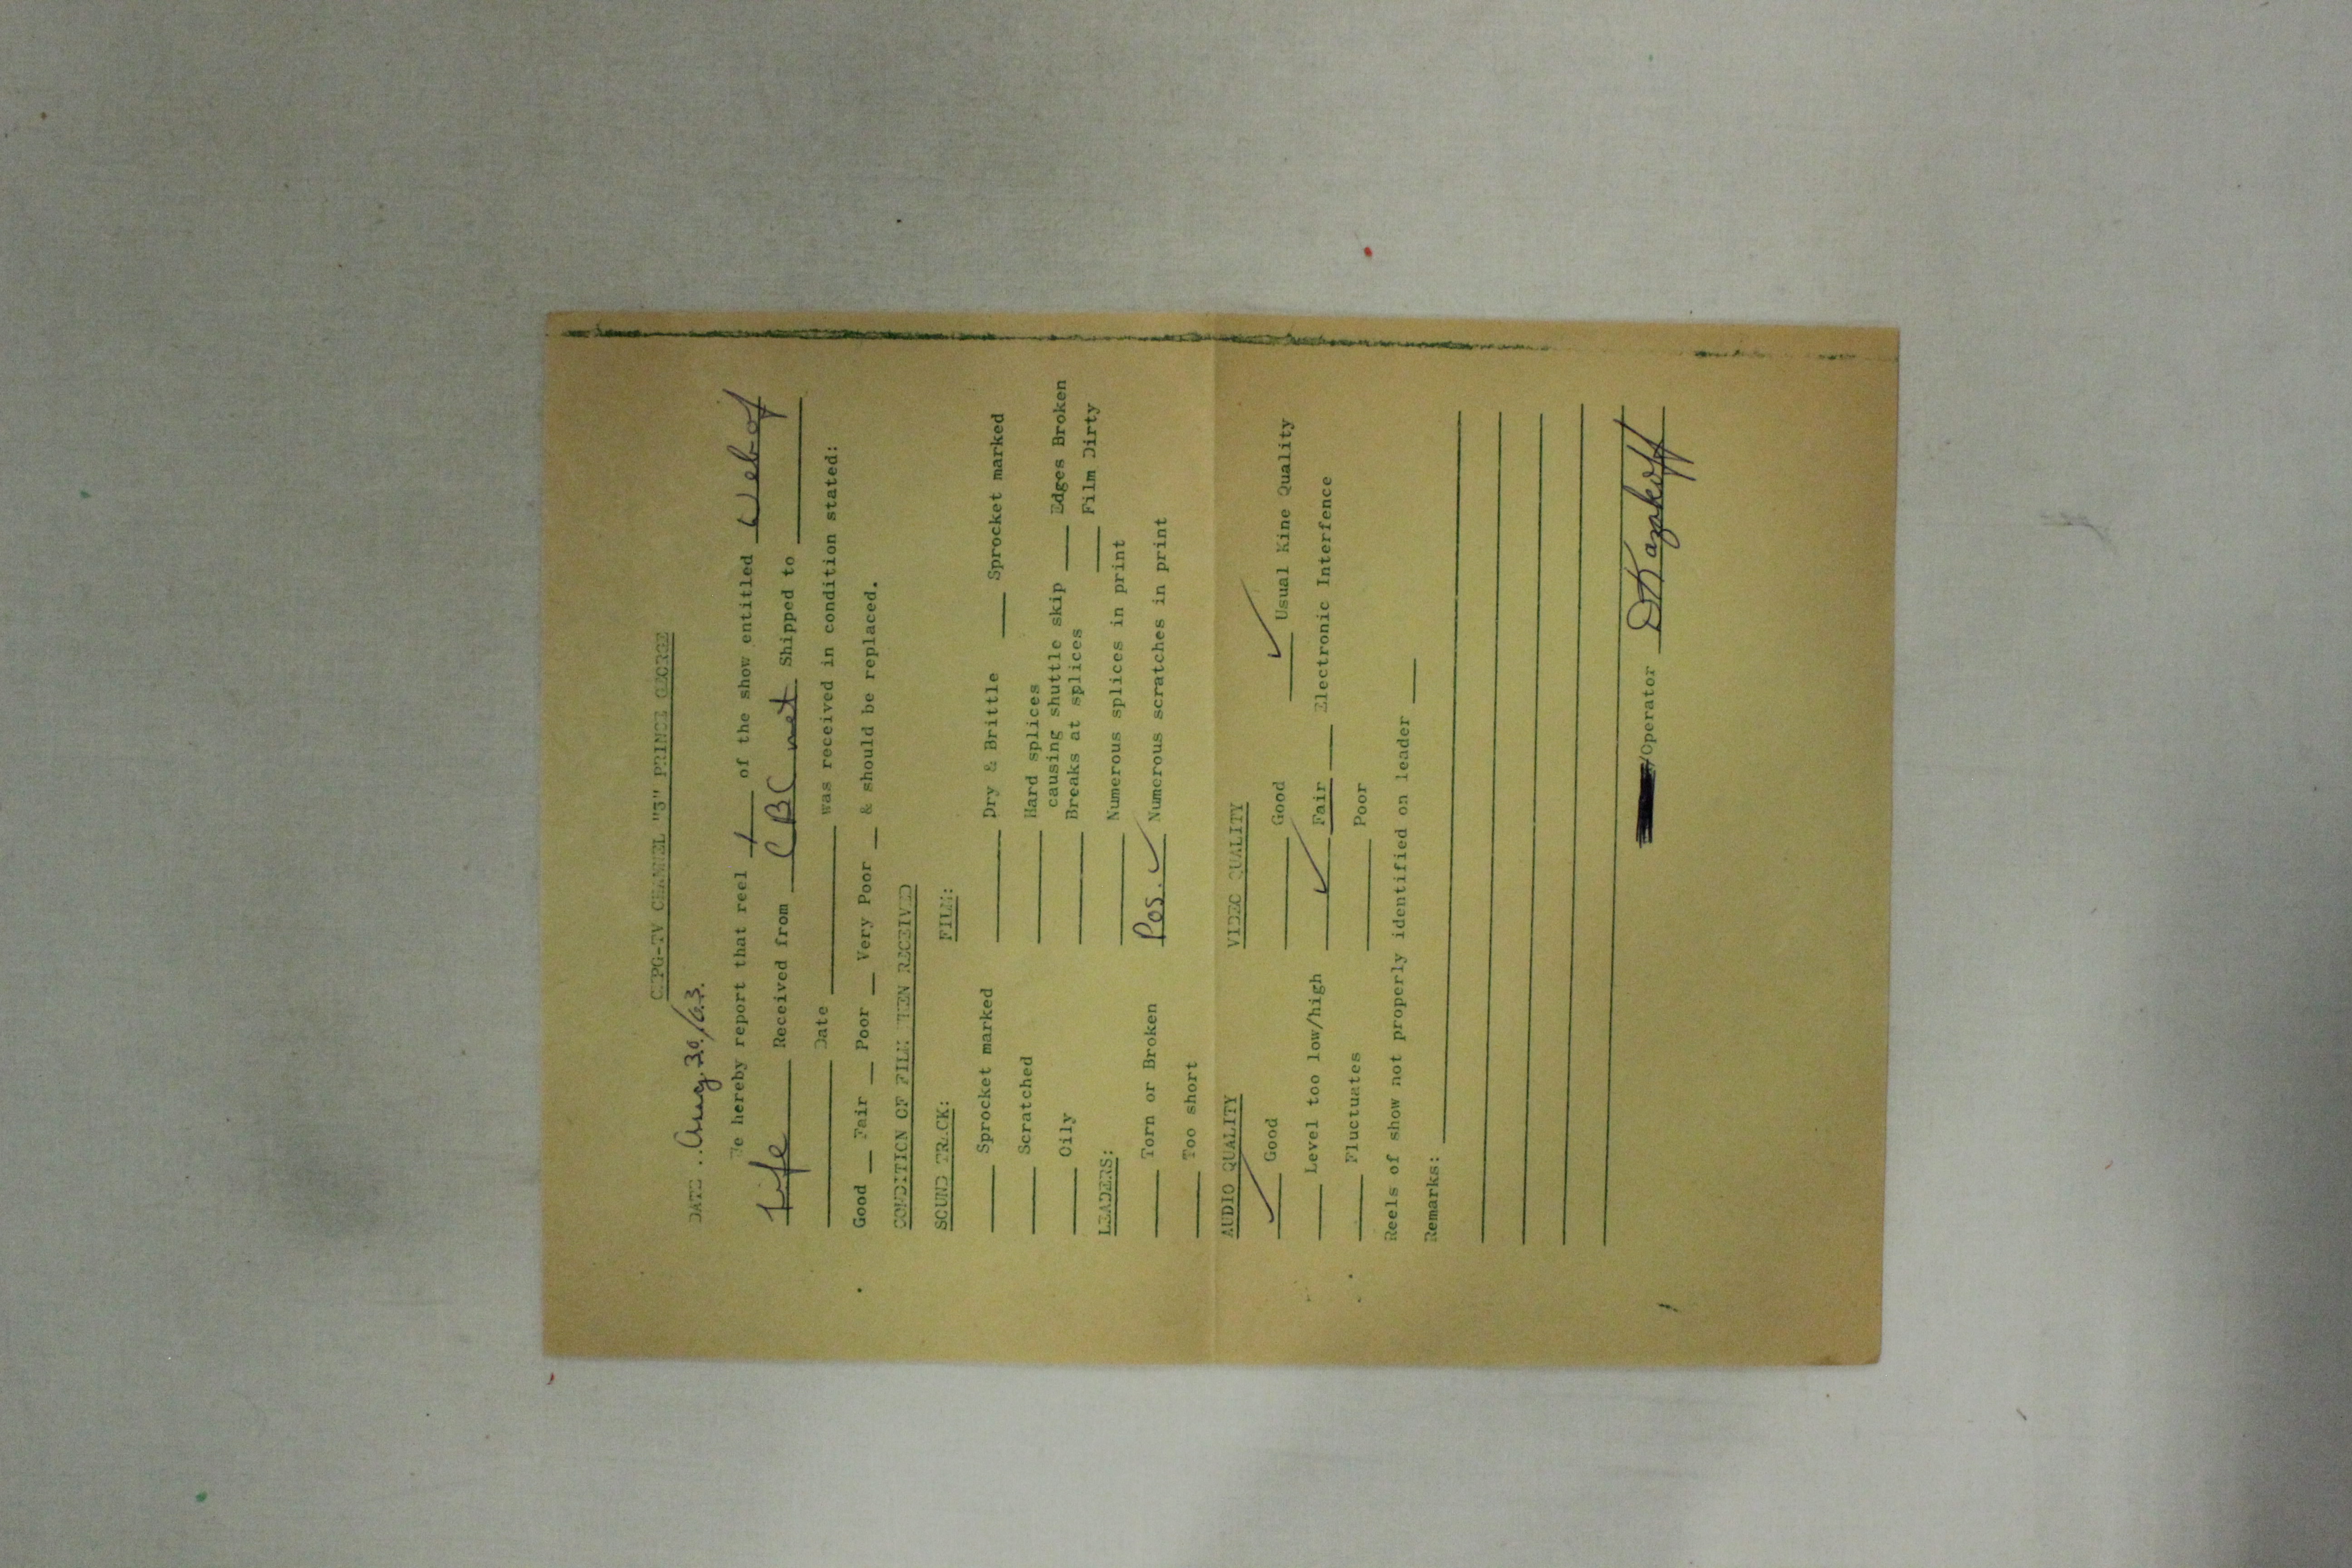 CKPG-TV CHANNEL "3" PRINCE GEORGE
DATE ..Aug. 30/63.
We hereby report that reel 1 of the show entitled Web of
Life Received from CBC net Shipped to
Date was received in condition stated:
Good Fair Poor Very Poor & should be replaced.
CONDITION OF FILM WHEN RECEIVED
SOUND TRACK: FILM:
Sprocket marked Dry & Brittle Sprocket marked
Scratched Hard splices
causing shuttle skip Edges Broken
Oily Breaks at splices Film Dirty
LEADERS: Numerous splices in print
Torn or Broken Pos. ✓ Numerous scratches in print
Too short
AUDIO QUALITY VIDEO QUALITY
✓ Good Good ✓ Usual Kine Quality
Level too low/high ✓ Fair Electronic Interfence
Fluctuates Poor
Reels of show not properly identified on leader
Remarks:
/Operator D Kazakoff